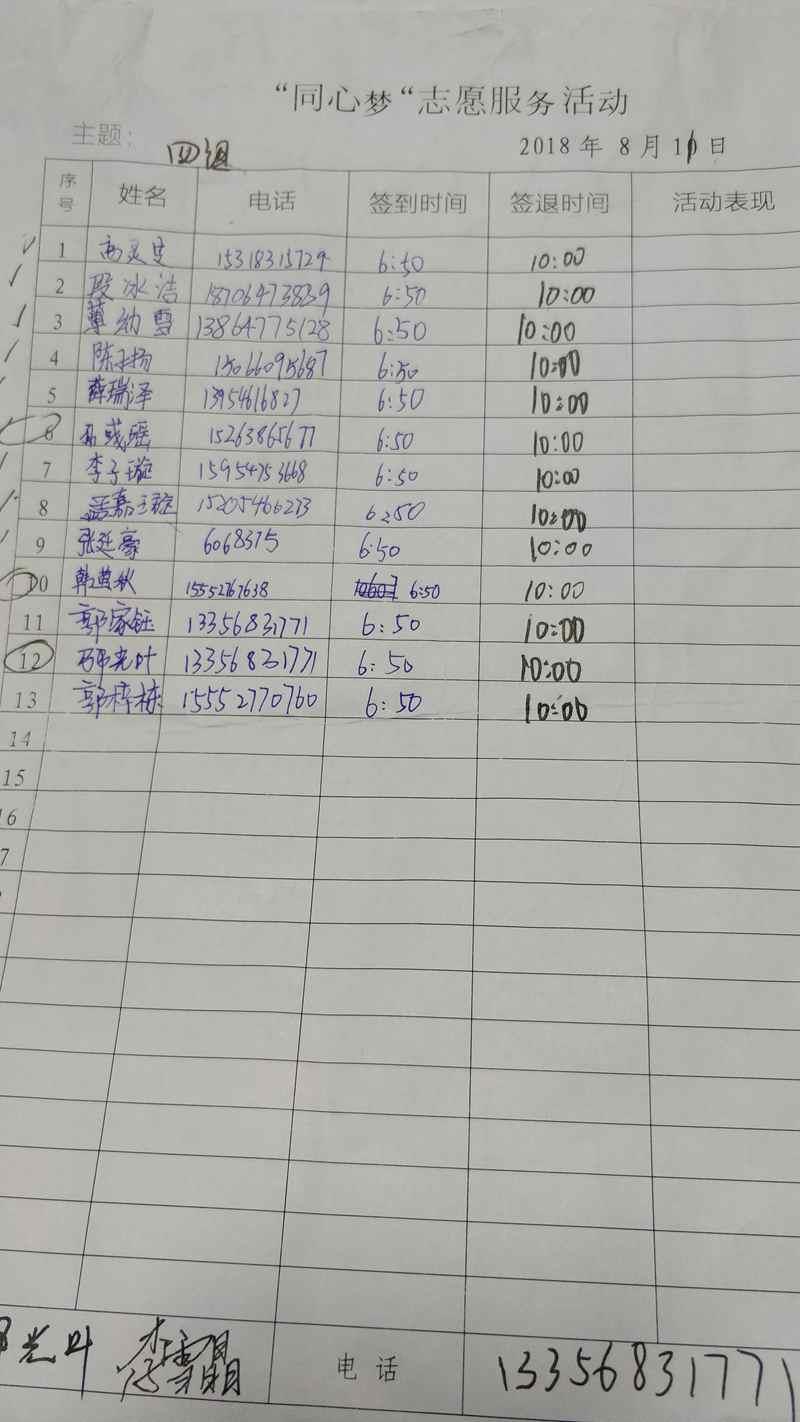 “同心梦“志愿服务活动
主题： 四组 2018 年 8 月 11 日
序号 姓名 电话 签到时间 签退时间 活动表现
1 15318315729 6:50 10:00
2 段冰洁 18706473839 6:50 10:00
3 13864775128 6:50 10:00
4 陈子扬 15066095687 6:50 10:00
5 薛瑞泽 13954616827 6:50 10:00
6 15263865677 6:50 10:00
7 李子璇 15954753668 6:50 10:00
8 15205466273 6:50 10:00
9 张延豪 6068375 6:50 10:00
10 15552767638 6:50 10:00
11 郭家钰 13356831771 6:50 10:00
12 光叶 13356831771 6:50 10:00
13 郭梓栋 15552770760 6:50 10:00
14
15
16
7
光叶 电 话 13356831771